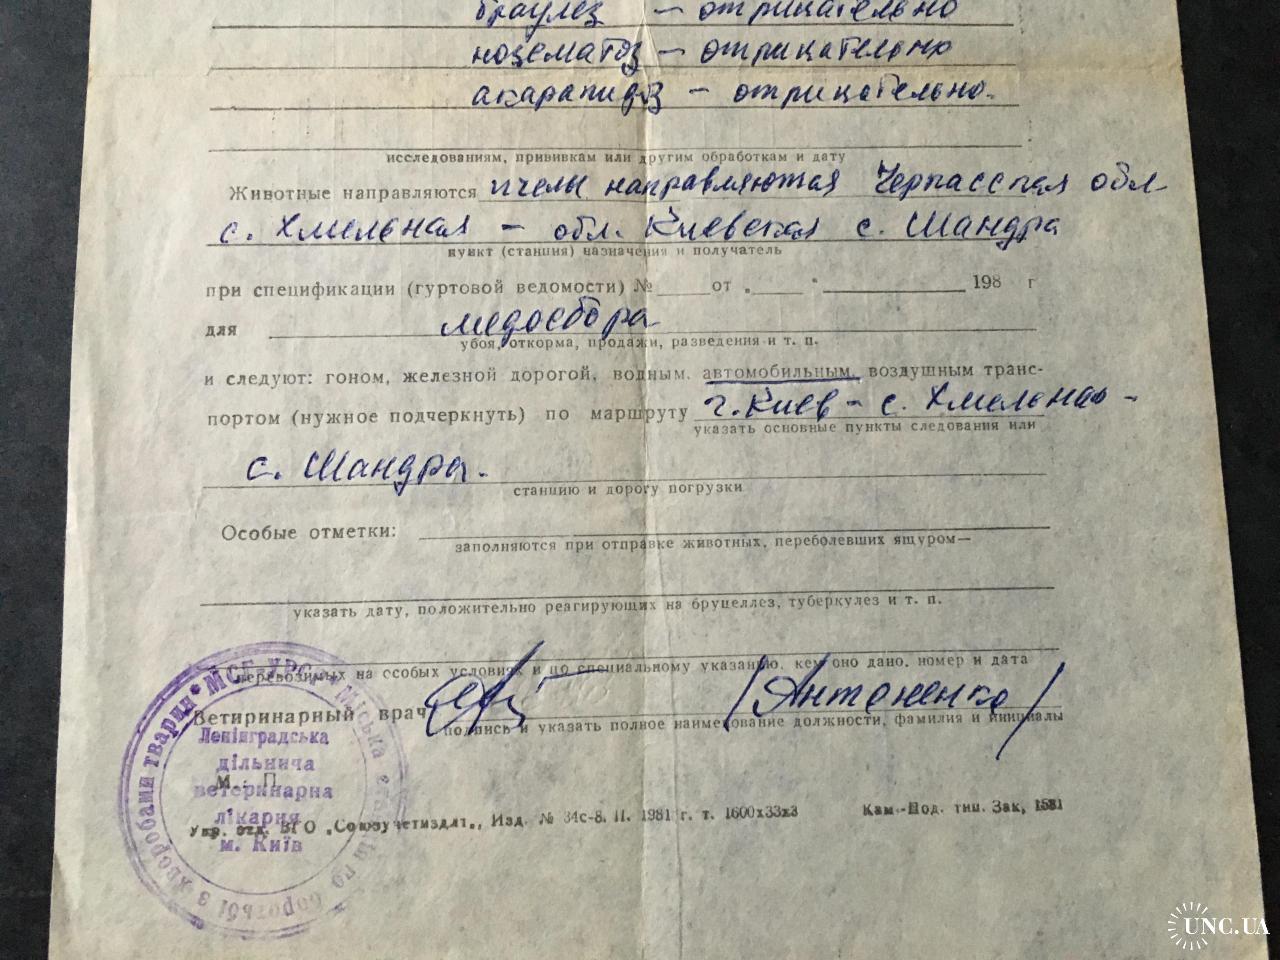 браулез – отрицательно
нозематоз – отрицательно
акарапидоз – отрицательно.
исследованиям, прививкам или другим обработкам и дату
Животные направляются пчелы направляются Черкасская обл
с. Хмельная – обл. Киевская с. Шандра
пункт (станция) назначения и получатель
при спецификации (гуртовой ведомости) № от „ " 198 г
для медосбора
убоя, откорма, продажи, разведения и т. п.
и следуют: гоном, железной дорогой, водным, автомобильным, воздушным транс-
портом (нужное подчеркнуть) по маршруту г. Киев – с. Хмельная –
указать основные пункты следования или
с. Шандра.
станцию и дорогу погрузки
Особые отметки:
заполняются при отправке животных, переболевших ящуром—
указать дату, положительно реагирующих на бруцеллез, туберкулез и т. п.
перевозимых на особых условиях и по специальному указанию, кем оно дано, номер и дата
Ветиринарный врач /Антоненко/
подпись и указать полное наименование должности, фамилия и инициалы
МСГ УРСР • Міська станція по боротьбі з хворобами тварин •
Ленінградська
дільнича
М. П.
ветеринарна
лікарня
м. Київ
Укр. отд. ВГО „Союзучетиздат„, Изд. № 34с-8. II. 1981 г. т. 1600х33х3 Кам.-Под. тип. Зак, 1581
UNC.UA